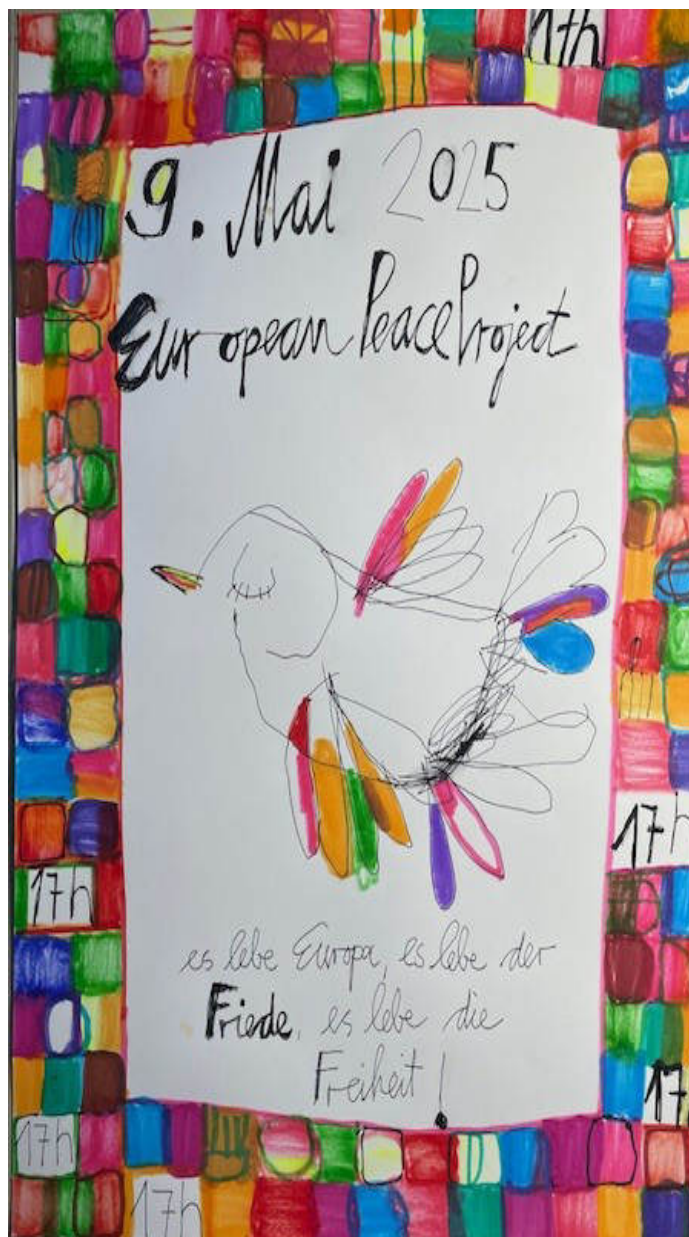 17h
9. Mai 2025
European Peace Project
17h
17h
es lebe Europa, es lebe der
Friede, es lebe die
Freiheit!
17
17h
17h